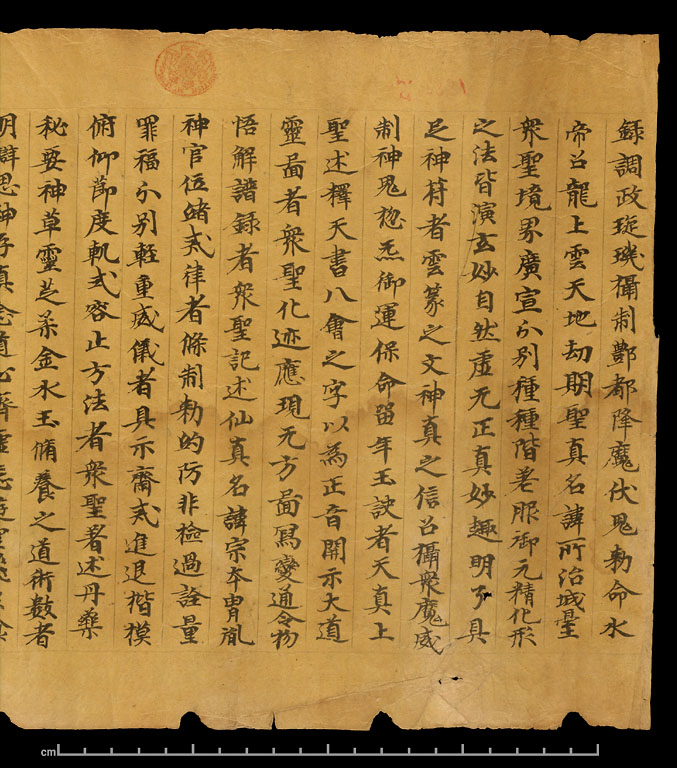 録調政琁璣攝制酆都降魔伏鬼勅命水
帝召龍上雲天地劫期聖真名諱所治城臺
衆聖境界廣宣分別種種階差服御元精化形
之法皆演玄妙自然虛无正真妙趣明了具
足神符者雲篆之文神真之信召攝衆魔威
制神鬼惣炁御運保命留年玉訣者天真上
聖述釋天書八會之字以為正音開示大道
靈啚者衆聖化迹應現无方啚寫變通令物
悟解譜録者衆聖記述仙真名諱宗本胄胤
神官位緒戒律者條制勅的防非檢過詮量
罪福分別輕重威儀者具示齋戒進退楷模
俯仰節度軌式容止方法者衆聖著述丹藥
秘要神草靈芝柔金水玉脩養之道術數者
明辟思神存真念道心齋虛
cm